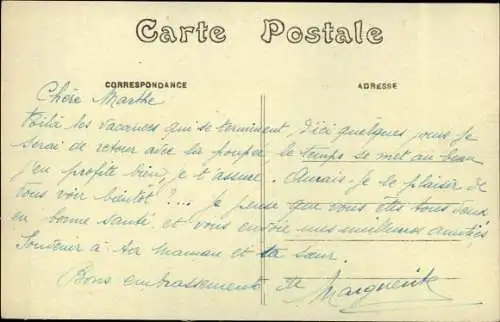 Carte Postale
CORRESPONDANCE
ADRESSE
Chère Marthe
Voilà les vacances qui se terminent, d'ici quelques jours je
serai de retour avec la poupée, le temps se met au beau
j'en profite bien, je t'assure. Aurais-je le plaisir de
vous voir bientôt ?... je pense que vous êtes tous deux
en bonne santé, et vous envoie mes meilleures amitiés,
Souvenir à ta maman et ta sœur.
Bons embrassements de Marguerite